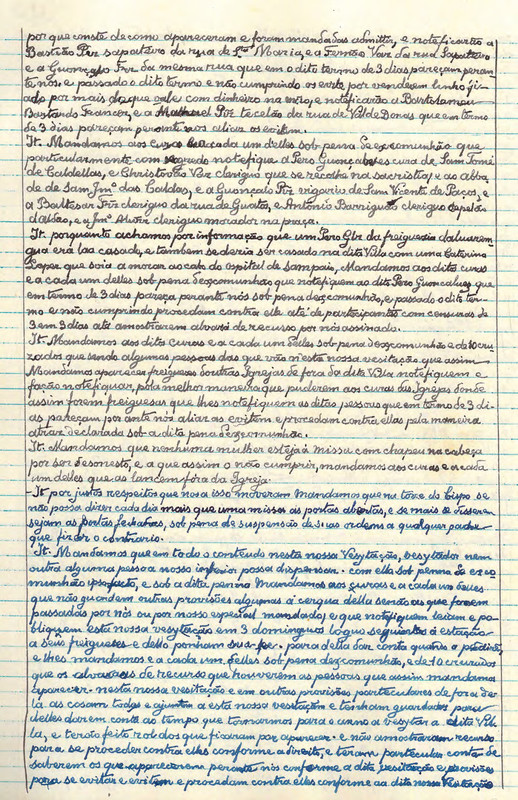 por que conste de como apareceram e foram mandadas admittir, e notificarão a
Bastião Pez sapateiro da rua de Sta Maria, e a Fernão Vaz da rua Sapateiro
e a Gonçalo Frz da mesma rua que em o dito termo de 3 dias pareçam peran
te nós e passado o dito termo e não cumprindo os evite por venderem linho fi
ado por mais do que vale com dinheiro na mão, e notificarão a Bartolameu
Bastardo Francez, e a Manoel Piz tecelão da rua de Val de Donas que em termo
de 3 dias pareçam perante nós aliás os evitem.
It. Mandamos aos curas e a cada um delles sob pena de excomunhão que
particularmente com segredo notefique a Pero Gonçalves cura de Sam Tomé
de Caldellas, e Christovão Vaz clerigo que se recolhe na sacristia, e ao abba,
de de Sam Jmo das Caldas, e a Gonçalo Piz vigario de Sam Vicente de Paços, e
a Baltesar Frz clerigo da rua de Guatos, e Antonio Barriguão clerigo capelão
d'Abbão, e a Jmo Alvrz clerigo morador na praça.
It. porquanto achamos por informação que um Pero Glz da freiguezia daluarem
gua era laa casado, e tambem se deria ser casado na dita Villa com uma Caterina
Lopez que soia a morar ao cabo do ospital de Sampaio, Mandamos aos ditos curas
e a cada um delles sob pena dexcomunhão que notefiquem ao dito Pero Guoncalves que
em termo de 3 dias pareça perante nós sob pena dexcomunhão, e passado o dito ter-
mo e não cumprindo procedam contra elle até de partecipantes com censuras de
3 em 3 dias até amostrarem alvará de recurso por nós assinado.
It. Mandamos aos ditos curas e a cada um delles sob pena dexcomunhão e de 10 cru-
zados que sendo algumas pessoas das que vão nesta nossa vesitação que assim
Mandamos aparecer freigueses doutras Igrejas de fora da dita Villa notefiquem e
facão notefiquar, pola melhor maneira que puderem aos curas das Igrejas donde
assim forem freiguesas que lhes notefiquem as ditas pessoas que em termo de 3 di-
as pareçam perante nós aliás as evitem e procedam contra ellas pela maneira
atraz declarada sob a dita pena dexcomunhão.
It. Mandamos que nenhuma mulher esteja á missa com chapeu na cabeça
por ser desonesto, e a que assim o não cumprir, mandamos aos curas e a cada
um delles que as lancem fóra da Igreja.
- It. por justos respeitos que nos a isso moveram mandamos que na tore do bispo se
não possa dizer cada dia mais que uma missa as portas abertas, e se mais se diserem
sejam as portas fechadas, sob pena de suspensão de suas ordens a qualquer padre
que fizer o contrario.
It. Mandamos que em todo o conteudo nesta nossa Vesytação, vesytador nem
outra alguma pessoa a nosso inferior possa dispensar. com ella sob penna de exco
munhão ipso facto, e sob a dita penna Mandamos aos curas e a cada um delles
que não guardem outras provisões algumas á cerqua della senão as que forem
passadas por nós ou por nosso especial mandado, e que notefiquem leiam e po-
bliquem esta nossa vesytação em 3 domingos loguo seguintes á estação
a seus freiguezes e dello ponham sua fee. para della dar conta quando a pedirem
e lhes mandamos e a cada um delles sob pena dexcomunhão, e de 10 cruzados
que os alvarás de recurso que houverem as pessoas que assim mandamos
aparecer. nesta nossa vesitação e em outras provisões particulares de fora de-
la as cosam todas e ajuntem a esta nossa vesitação e tenham guardados para
delles darem conta ao tempo que tornarmos para o anno a vesytar a dita Vil-
la, e terão feito rol dos que fizeram por aparecer. e não amostraram recurso
para se proceder contra elles conforme a direito, e teram particular conta de
saberem os que aparecerem perante nós conforme a dita vesitação e provisões
para se evitar e evitem e procedam contra elles conforme a dita nossa vesitação